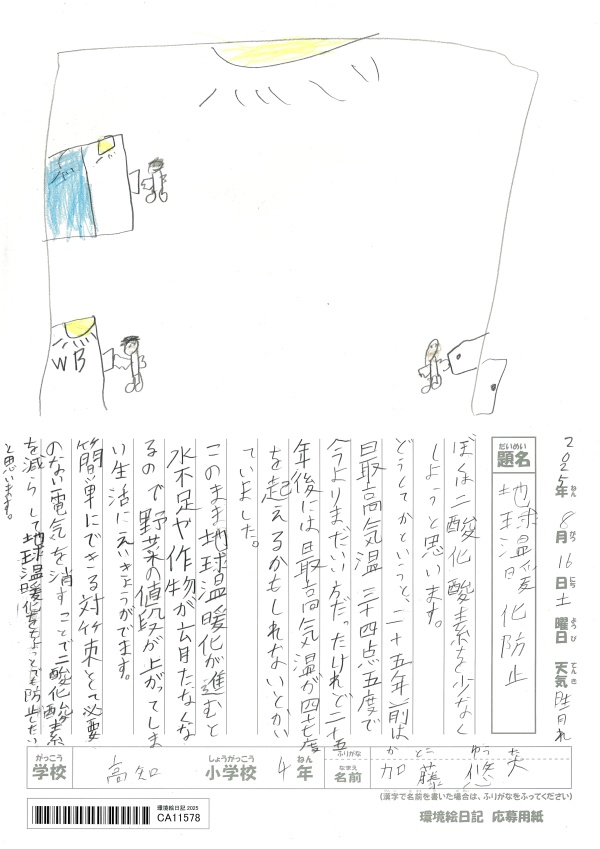 WB
2025年 8月 16日 土曜日 天気 晴れ
ねん がつ にち ようび てんき
だいめい
題名
地球温暖化防止
ぼくは二酸化酸素を少なく
しようと思います。
どうしてかというと、二十五年前は
日最高気温 三十四点五度で
今よりまだいい方だったけれど二十五
年後には日最高気温が四十七度
を起えるかもしれないとかい
ていました。
このまま地球温暖化が進むと
水不足や作物が育たなくな
るので野菜の値段が上がってしま
い生活にえいきょうがでます。
簡単にできる対策として必要
のない電気を消すことで二酸化酸素
を減らして地球温暖化をちょっとでも防止したい
と思います。
がっこう
学校
高知
しょうがっこう
小学校
4年
ねん
ふりがな
なまえ
名前
か とう ゆう
加藤悠
(漢字で名前を書いた場合は、ふりがなをふってください)
環境絵日記 2025
CA11578
環境絵日記 応募用紙